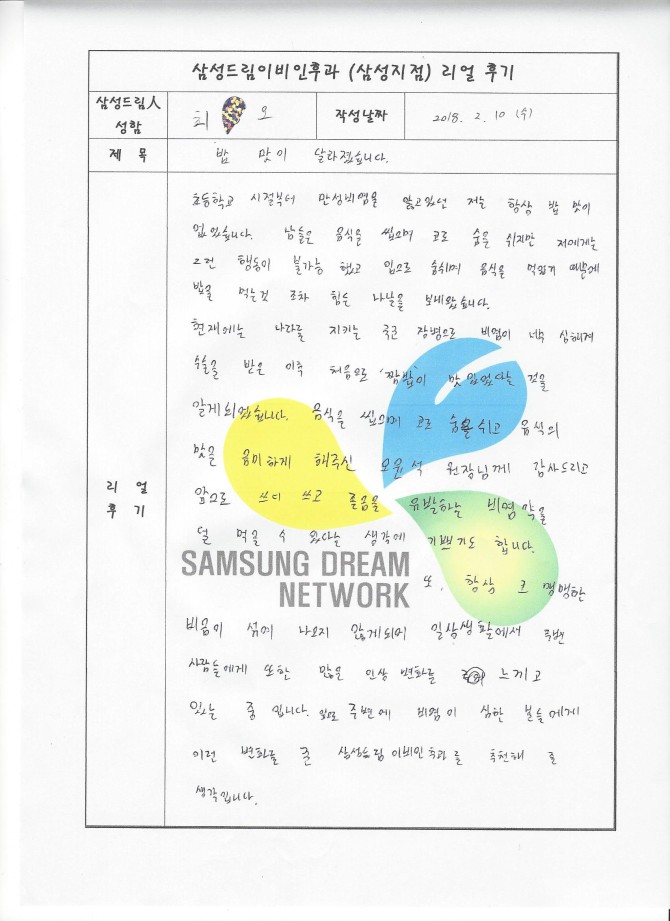 삼성드림이비인후과 (삼성지점) 리얼 후기
삼성드림人
성함
최 오
작성날짜
2018. 2. 10 (수)
제 목
밥 맛이 달라졌습니다.
리 얼
후 기
초등학교 시절부터 만성비염을 앓고있던 저는 항상 밥 맛이
없었습니다. 남들은 음식을 씹으며 코로 숨을 쉬지만 저에게는
그런 행동이 불가능 했고 입으로 숨쉬며 음식을 먹었기 때문에
밥을 먹는것 조차 힘든 나날을 보내왔습니다.
현재에는 나라를 지키는 국군 장병으로 비염이 너무 심해져
수술을 받은 이후 처음으로 '짬밥'이 맛있었다는 것을
알게되었습니다. 음식을 씹으며 코로 숨을 쉬고 음식의
맛을 음미하게 해주신 오윤석 원장님께 감사드리고
앞으로 쓰디 쓰고 졸음을 유발하는 비염약을
덜 먹을 수 있다는 생각에 기쁘기도 합니다.
SAMSUNG DREAM
NETWORK
또, 항상 코 맹맹한
비음이 섞여 나오지 않게되어 일상생활에서 주변
사람들에게 또한 많은 인상 변화를 느끼고
있는 중 입니다. 앞으로 주변에 비염이 심한 분들에게
이런 변화를 준 삼성드림이비인후과를 추천해 줄
생각입니다.